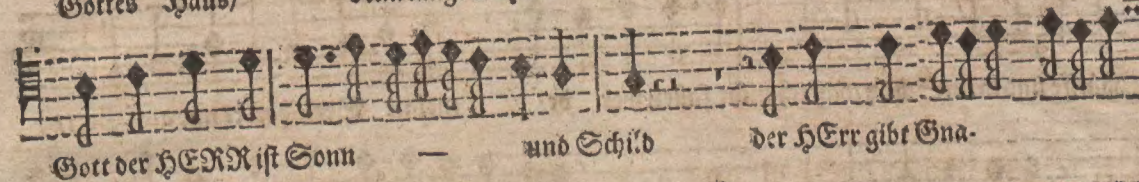 Gottes Haus/
Gott der HERR ist Sonn — und Schild der HErr gibt Gna-